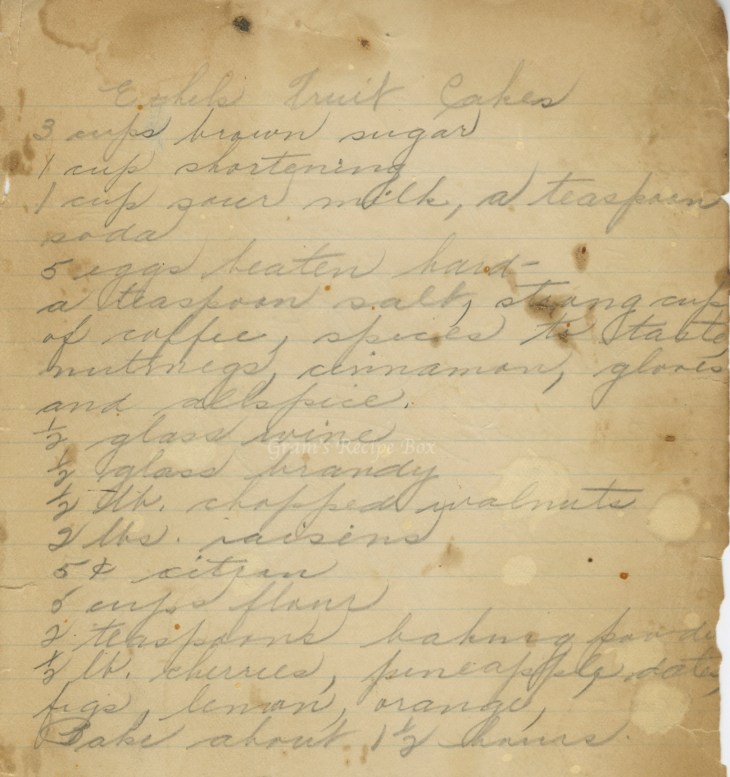 Ethels Fruit Cakes
3 cups brown sugar
1 cup shortening
1 cup sour milk, a teaspoon
soda
5 eggs beaten hard-
a teaspoon salt, strong cup
of coffee, spices to taste
nutmegs, cinnamon, gloves
and allspice.
1/2 glass wine
Gram's Recipe Box
1/2 glass brandy
1/2 lb. chopped walnuts
2 lbs. raisins
5¢ citron
5 cups flour
2 teaspoons baking powde
1/2 lb. cherries, pineapple, dates,
figs, lemon, orange,
Bake about 1 1/2 hours.